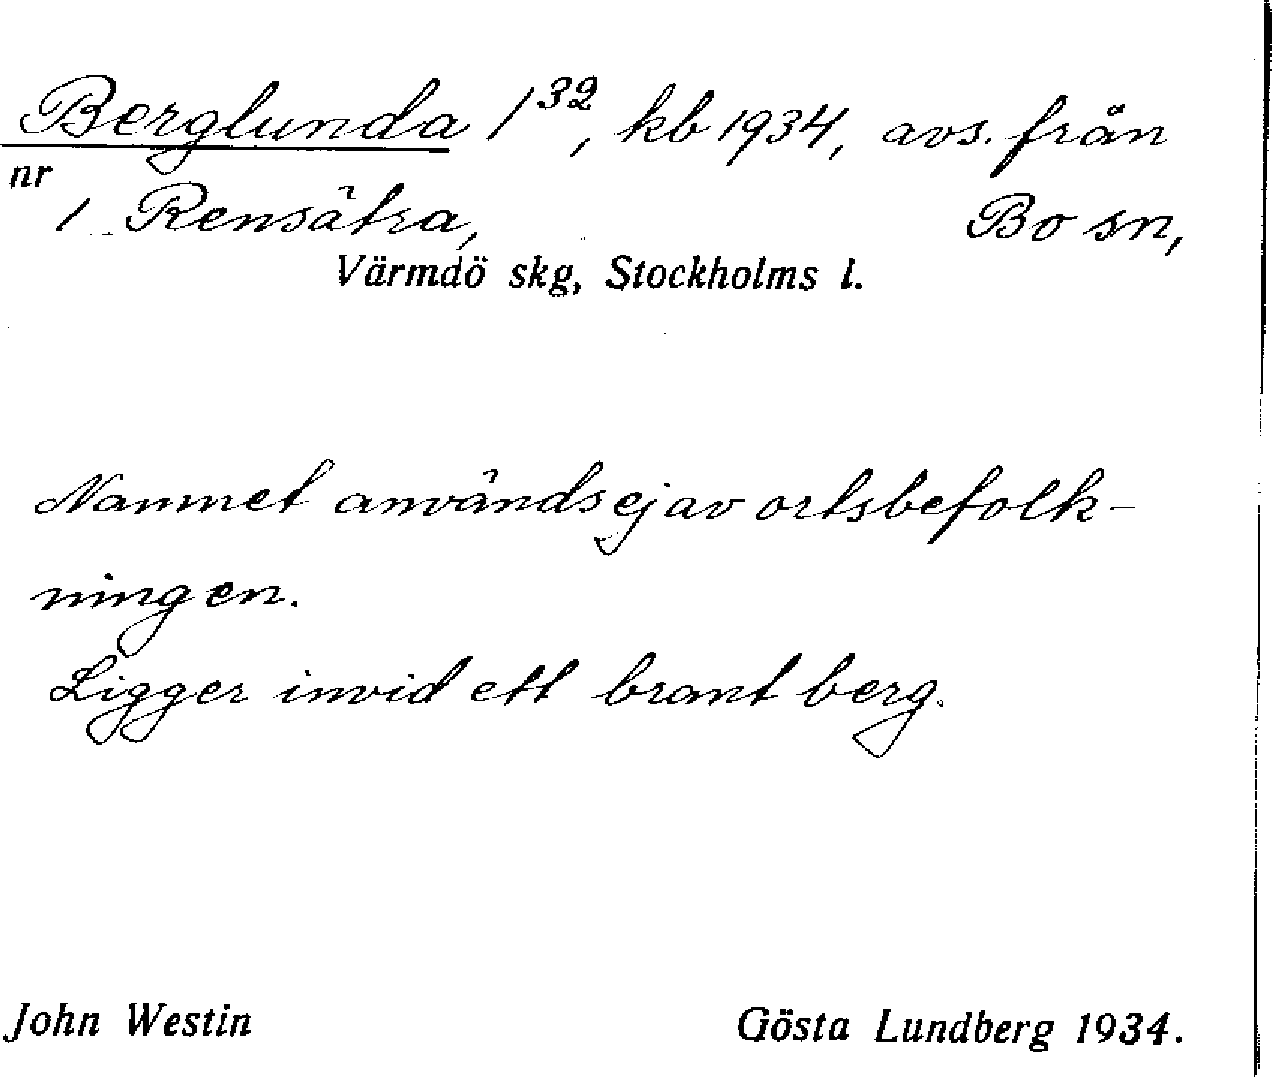 Berglunda 1³², kb 1934, avs. från
nr 1 Rensätra, Bo sn,
Värmdö skg, Stockholms l.
Namnet används ej av ortsbefolk-
ningen.
Ligger invid ett brant berg.
John Westin Gösta Lundberg 1934.